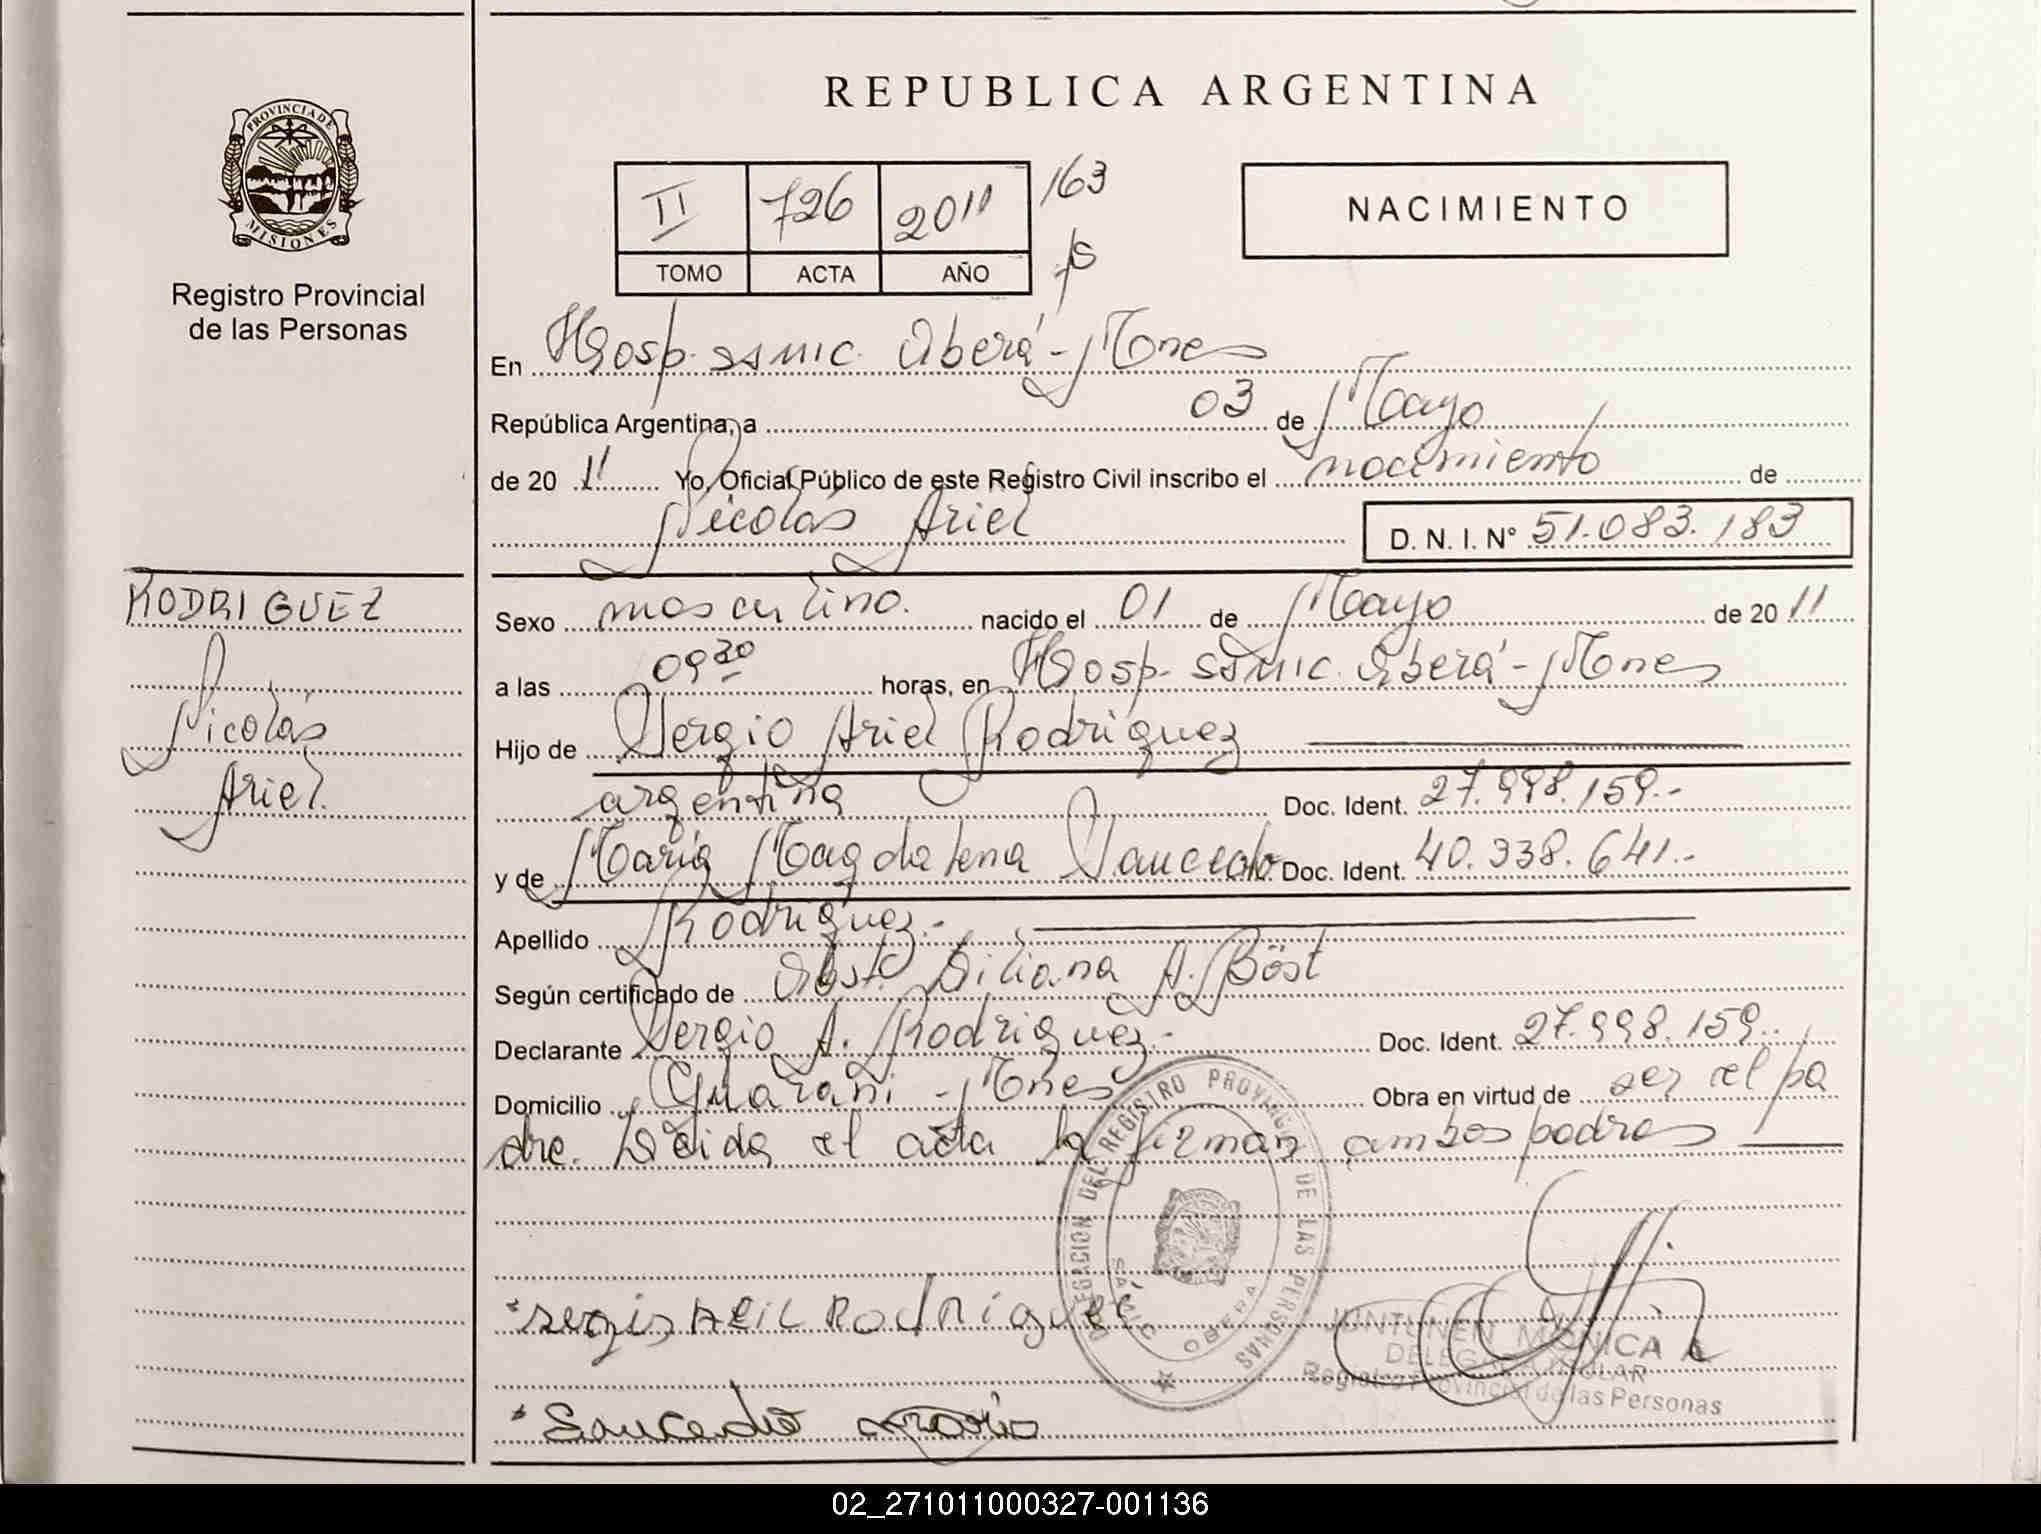 REPUBLICA ARGENTINA
PROVINCIA DE
MISIONES
Registro Provincial
de las Personas
II 726 2011 163
TOMO ACTA AÑO
NACIMIENTO
En Hosp. SAMIC. Oberá - Mones
República Argentina, a 03 de Mayo
de 20 11 Yo, Oficial Público de este Registro Civil inscribo el nacimiento de
Nicolás Ariel D. N. I. N° 51.083.183
RODRIGUEZ
Nicolás
Ariel.
Sexo masculino. nacido el 01 de Mayo de 20 11
a las 09 30 horas, en Hosp. SAMIC. Oberá - Mones
Hijo de Sergio Ariel Rodriguez
argentina Doc. Ident. 27.998.159.-
y de María Magdalena Saucedo Doc. Ident. 40.338.641.-
Apellido Rodriguez.-
Según certificado de Obst. Liliana A. Böst
Declarante Sergio A. Rodriguez.- Doc. Ident. 27.998.159.-
Domicilio Guaraní - Mnes Obra en virtud de ser el pa
dre. Leída el acta la firman ambos padres
DELEGACION DEL REGISTRO PROVINCIAL DE LAS PERSONAS
SAMIC OBERA
sergio ARIEL Rodriguez
Saucedo María
JUNTUNEN MONICA
DELEGADA TITULAR
Registro Provincial de las Personas
02_271011000327-001136